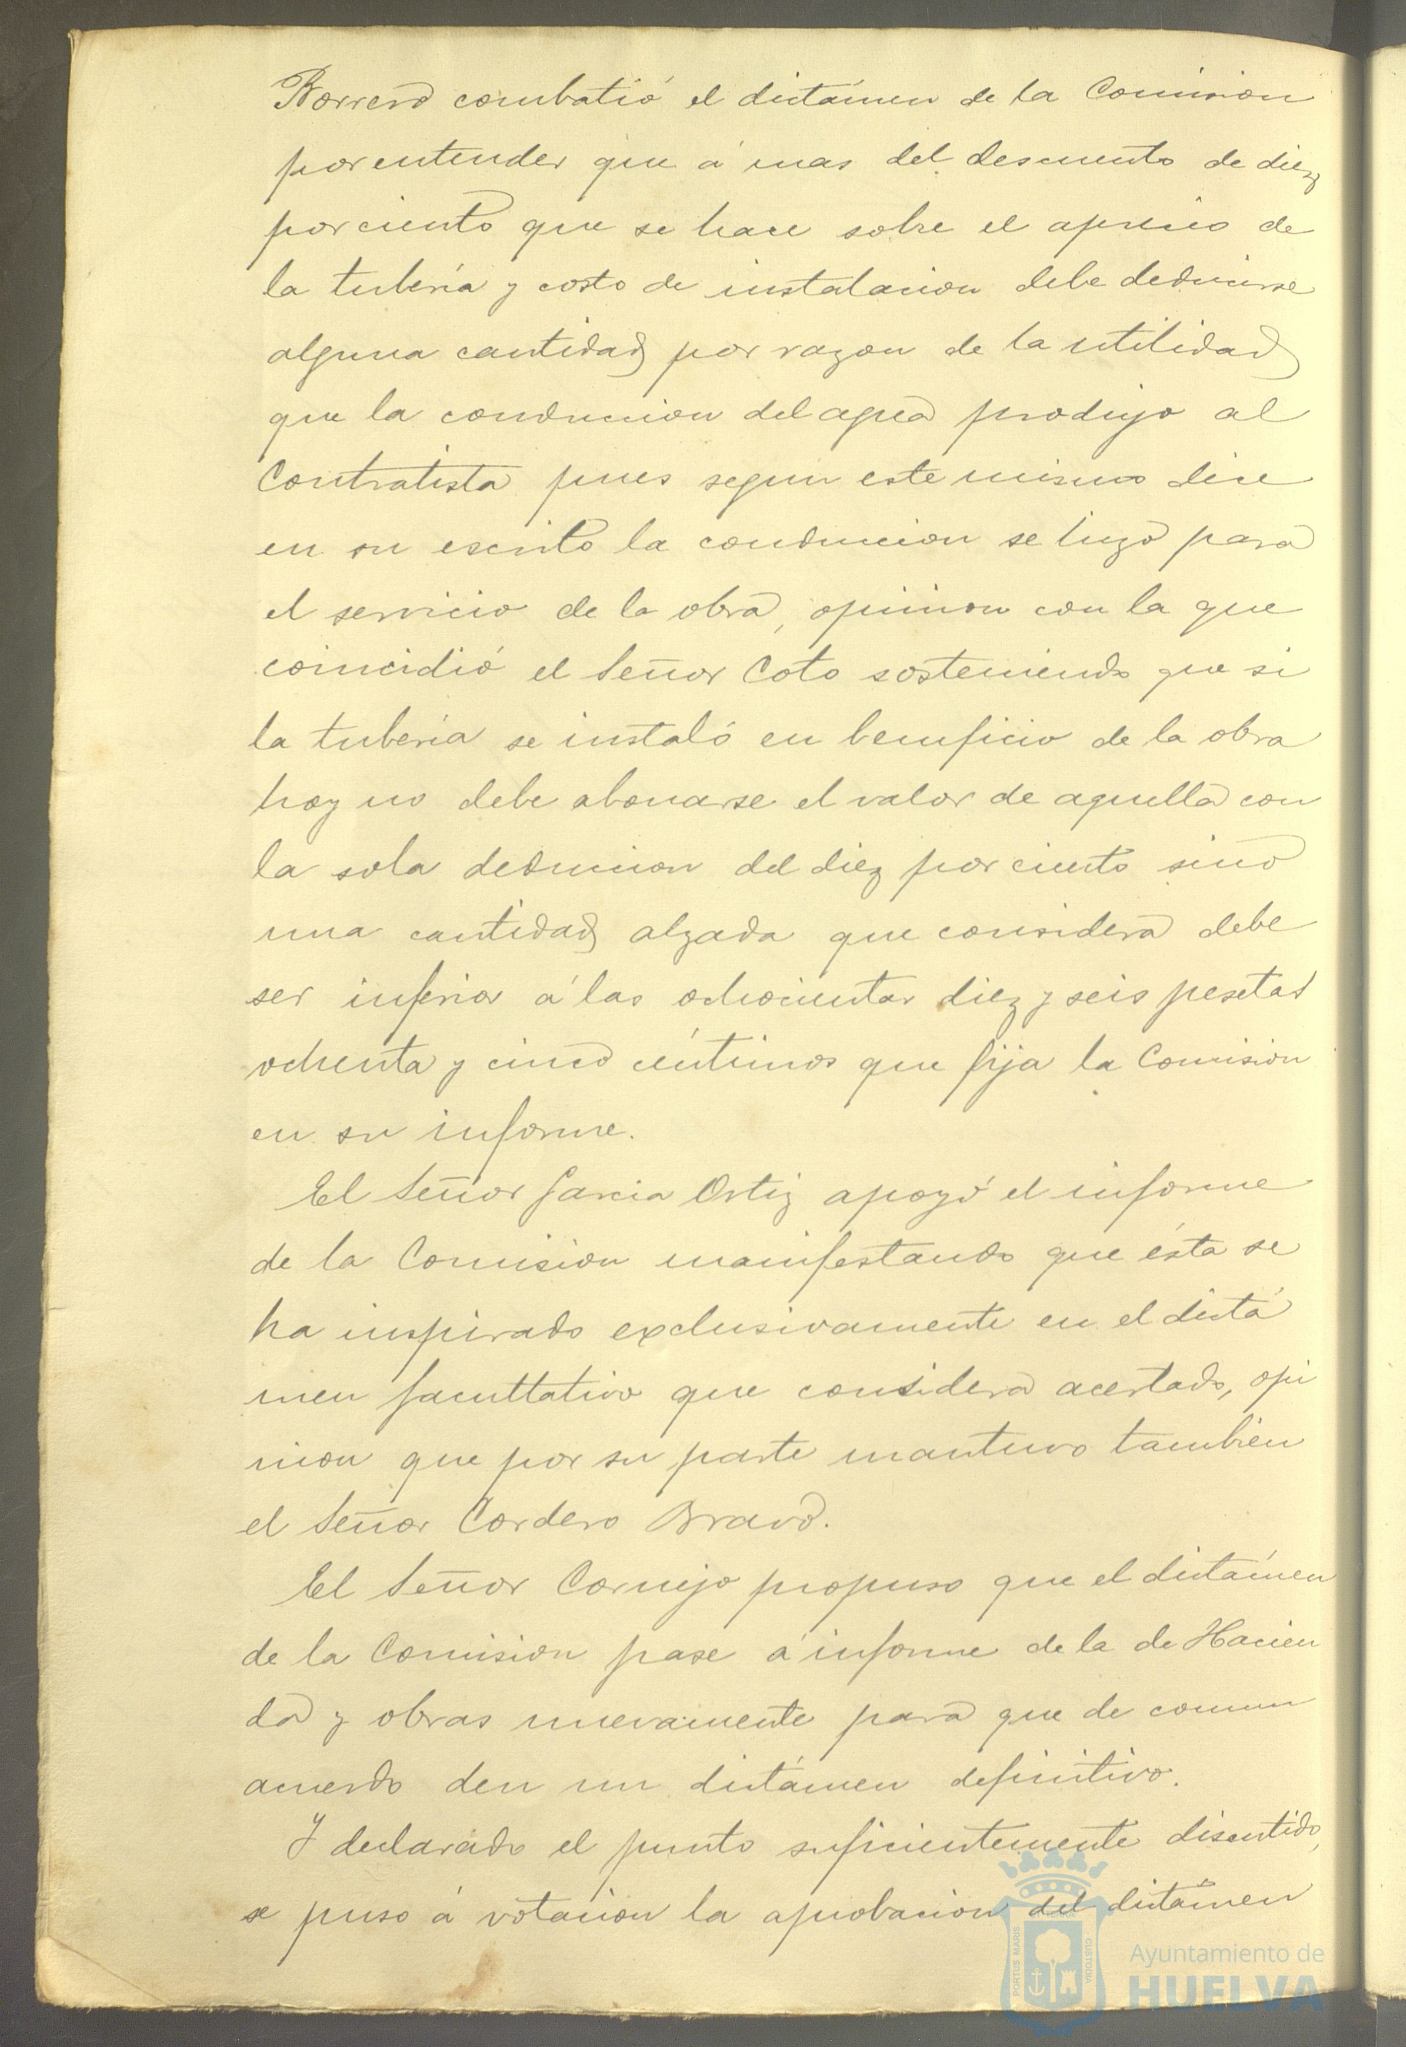 Borrero combatió el dictámen de la Comision
por entender que á mas del descuento de diez
por ciento que se hace sobre el aprecio de
la tubería y costo de instalacion debe deducirse
alguna cantidad por razon de la utilidad
que la conduccion del agua produjo al
Contratista pues segun este mismo dice
en su escrito la conduccion se hizo para
el servicio de la obra, opinion con la que
coincidió el Señor Coto sosteniendo que si
la tubería se instaló en beneficio de la obra
hoy no debe abonarse el valor de aquella con
la sola deduccion del diez por ciento sino
una cantidad alzada que considera debe
ser inferior á las ochocientas diez y seis pesetas
ochenta y cinco céntimos que fija la Comision
en su informe.
El Señor Garcia Ortiz apoyó el informe
de la Comision manifestando que ésta se
ha inspirado exclusivamente en el dictá
men facultativo que considera acertado, opi
nion que por su parte mantuvo tambien
el Señor Cordero Bravo.
El Señor Cornejo propuso que el dictámen
de la Comision pase á informe de la de Hacien
da y obras nuevamente para que de comun
acuerdo den un dictámen definitivo.
Y declarado el punto suficientemente discutido,
se puso á votacion la aprobacion del dictámen
PORTUS MARIS
CUSTODIA
Ayuntamiento de
HUELVA